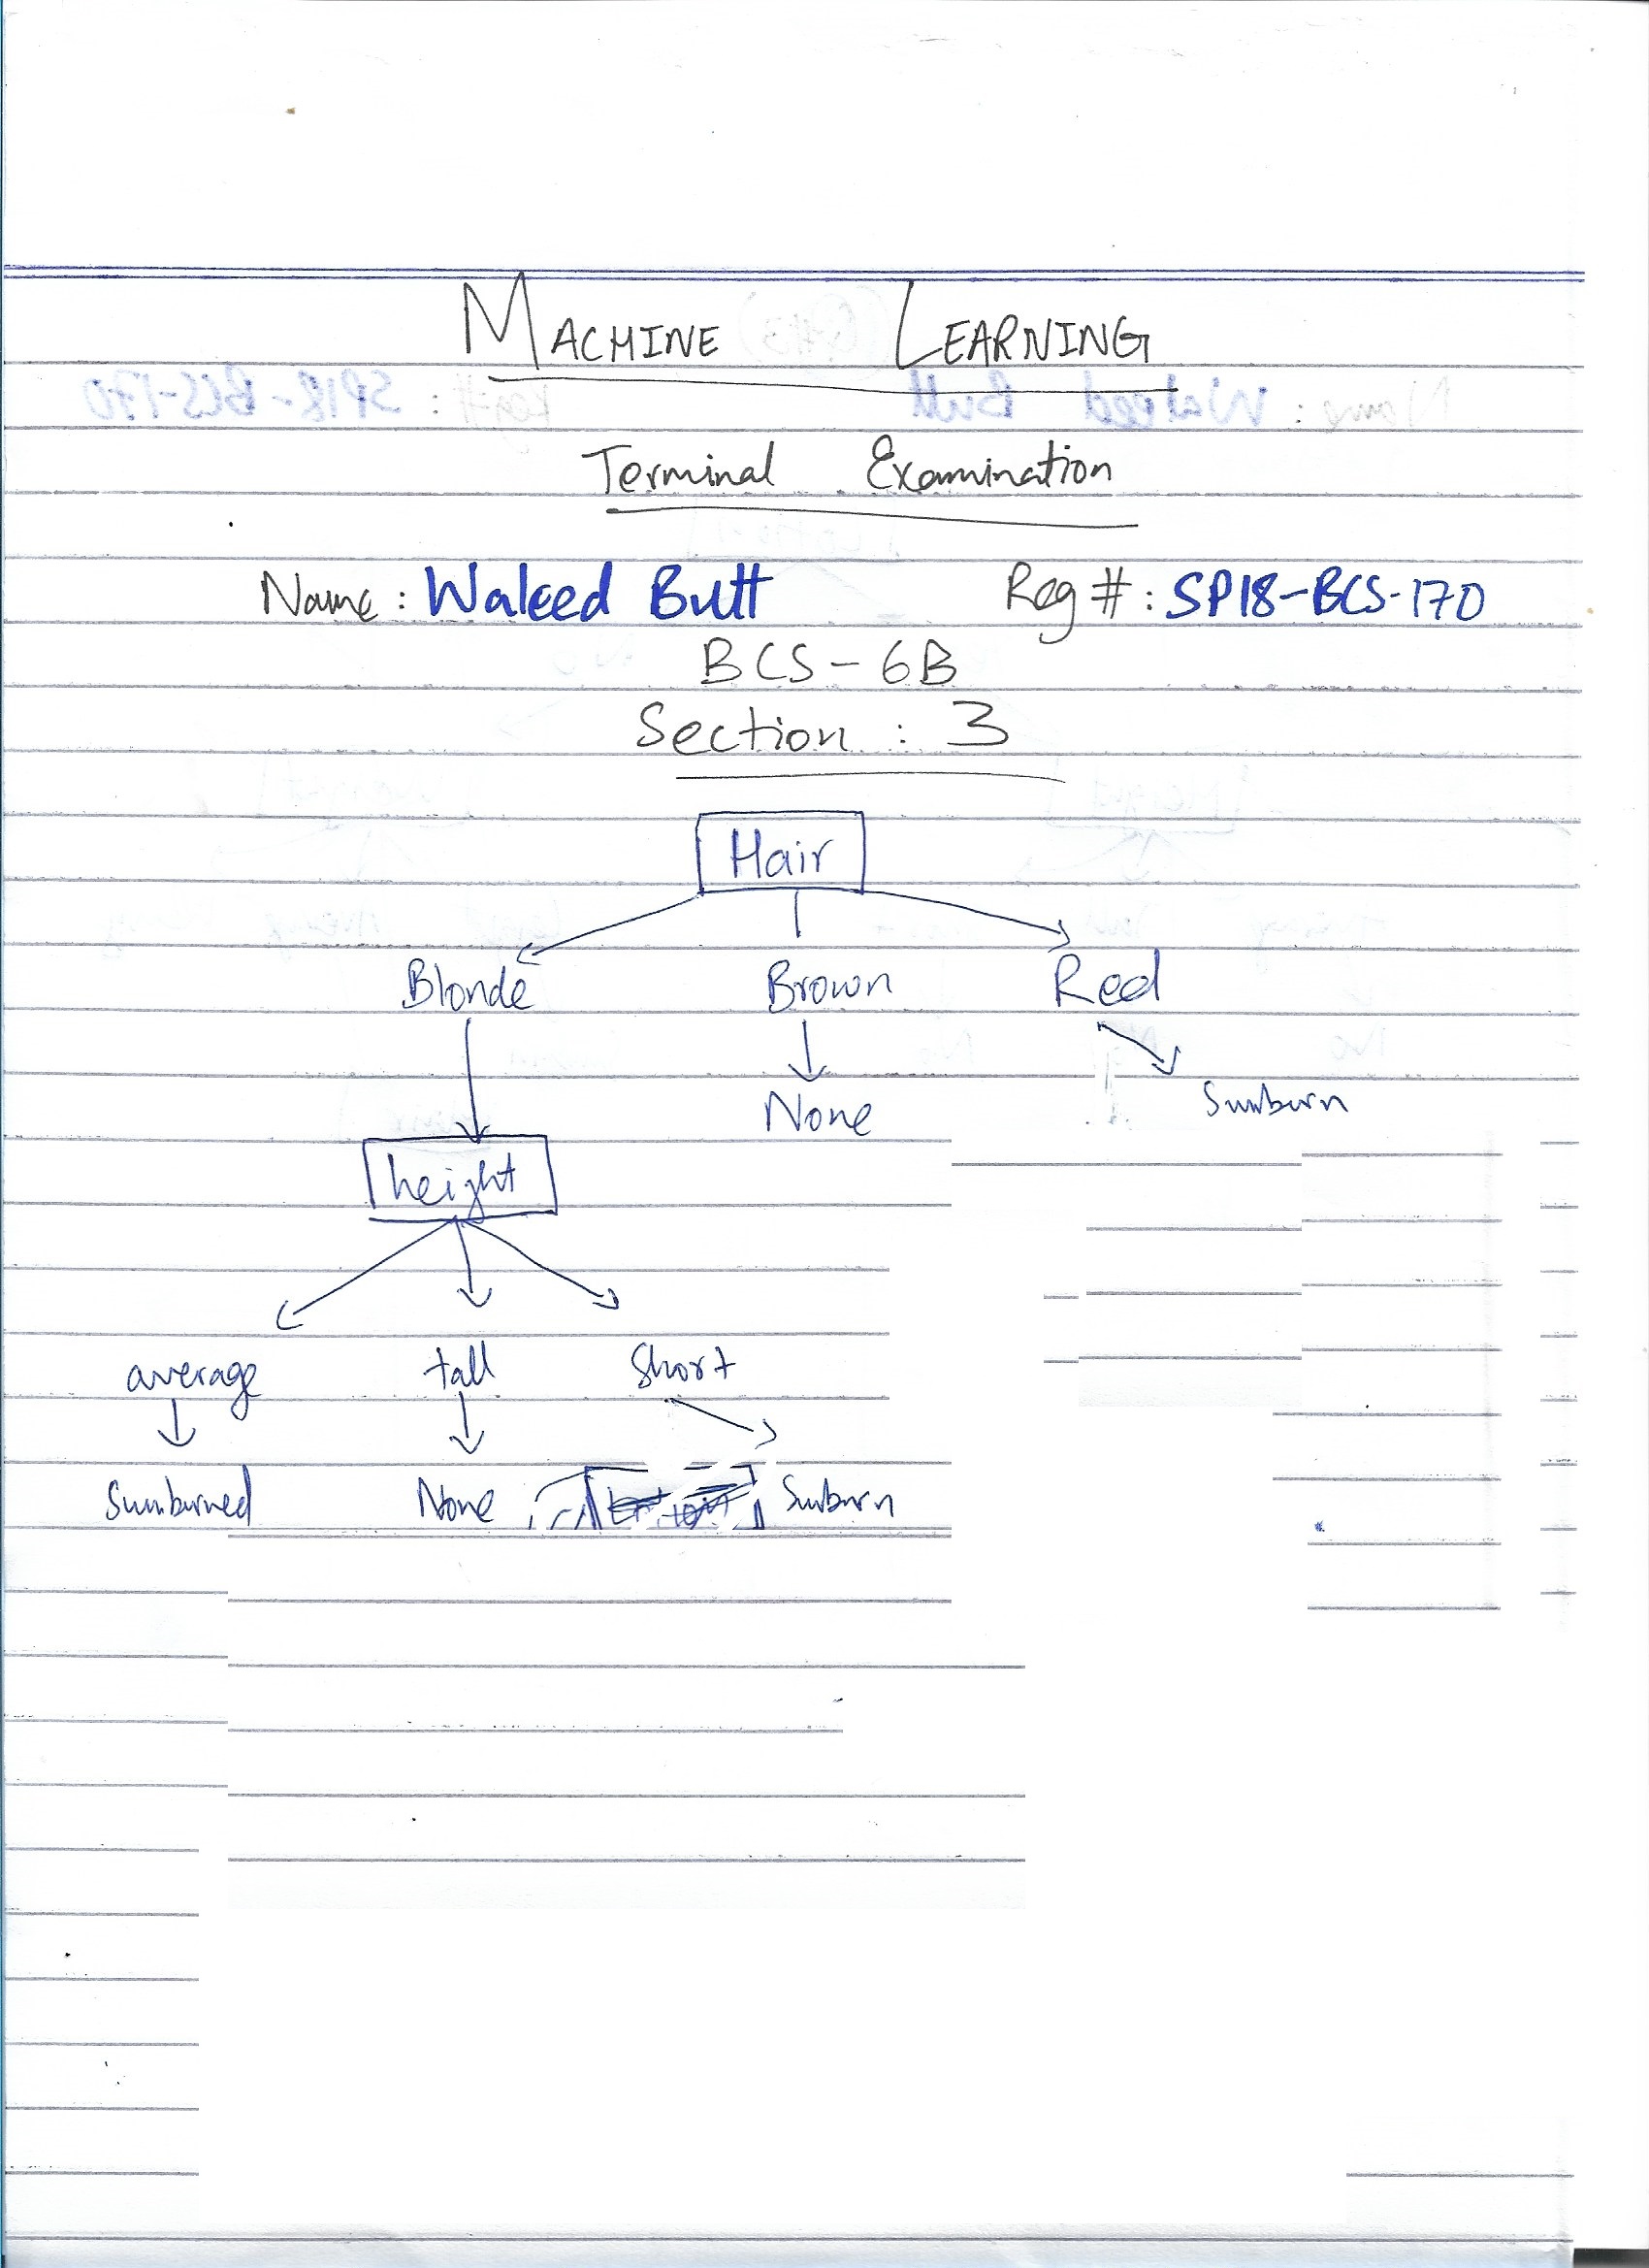 MACHINE LEARNING
Terminal Examination
Name : Waleed Butt Reg # : SP18-BCS-170
BCS-6B
Section : 3
Hair
Blonde Brown Red
None Sunburn
height
average tall Short
Sunburned None Sunburn